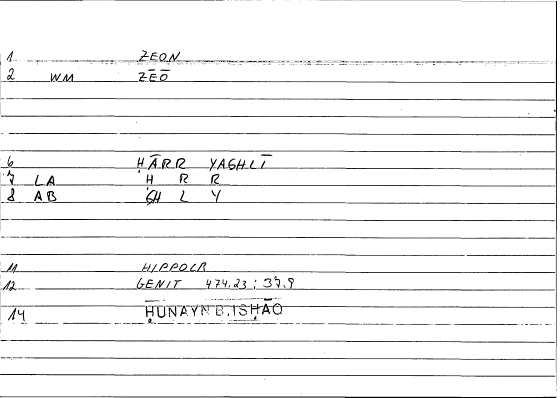 1 ZEON
2 WM ZĒŌ
6 ḤĀRR YAGHLĪ
7 LA Ḥ R R
8 AB GH L Y
11 HIPPOLR
12 GENIT 474.23 ; 37.9
14 ḤUNAYN B. ISḤĀQ